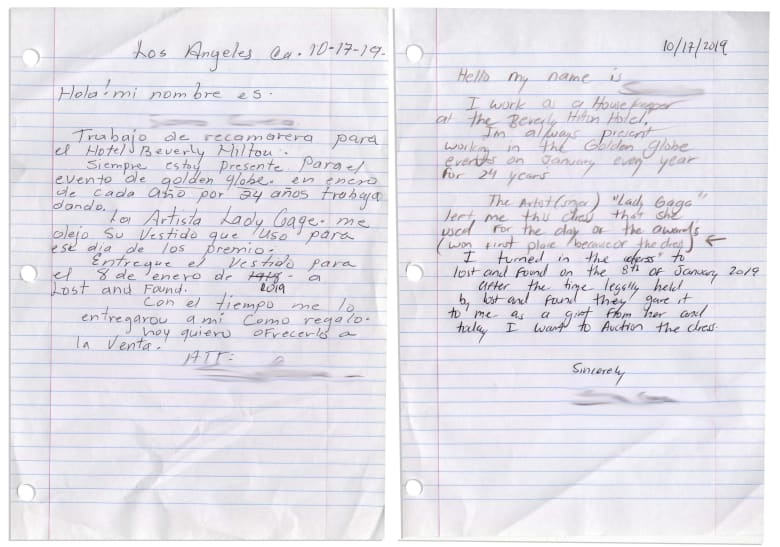 Los Angeles Ca. 10-17-19.
Hola! mi nombre es.
Trabajo de recamarera para
el Hotel Beverly Hiltou.
Siempre estoy presente para el
evento de golden globe. en enero
de cada año por 24 años trabaja
dando.
La Artista Lady Gage. me
dejo su vestido que uso para
ese dia de los premio.
Entregue el vestido para
el 8 de enero de 2019 a
Lost and Found.
Con el tiempo me lo
entregarou a mi como regalo.
hoy quiero ofrecerlo a
la venta.
ATT:
10/17/2019
Hello my name is
I work as a Housekeeper
at the Beverly Hilton Hotel.
I'm always present
working in the Golden globe
events on January every year
for 24 years
The Artist (singer) "Lady Gaga"
left me this dress that she
used for the day of the awards
(won first place because of the dress)
I turned in the "dress" to
lost and found on the 8th of January 2019
after the time legally held
by lost and found they gave it
to me as a gift from her and
today I want to Auction the dress.
Sincerely